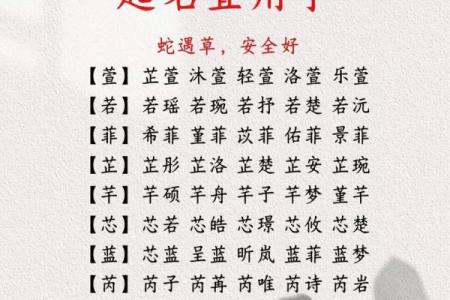 起名宜用字
蛇遇草，安全好
【萱】芷萱 沐萱 轻萱 洛萱 乐萱
【若】若瑶 若琬 若抒 若楚 若沅
【菲】希菲 堇菲 苡菲 佑菲 景菲
【芷】芷彤 芷洛 芷楚 芷安 芷琬
【芊】芊硕 芊舟 芊子 芊梦 堇芊
【芯】芯若 芯皓 芯璟 芯攸 芯楚
【蓝】芯蓝 呈蓝 昕岚 蓝菲 蓝梦
【芮】芮子 芮苒 芮唯 芮诗 芮岩